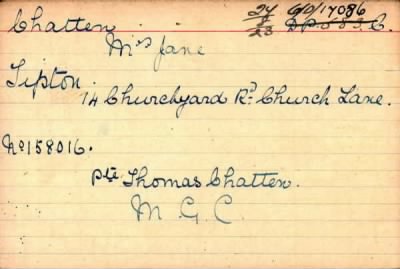 Chatten 24/2/23 6/D/17086
Mrs Jane D.P.583.C.
Tipton
14 Churchyard Rd. Church Lane.
No 158016.
Pte Thomas Chatten.
M G C.